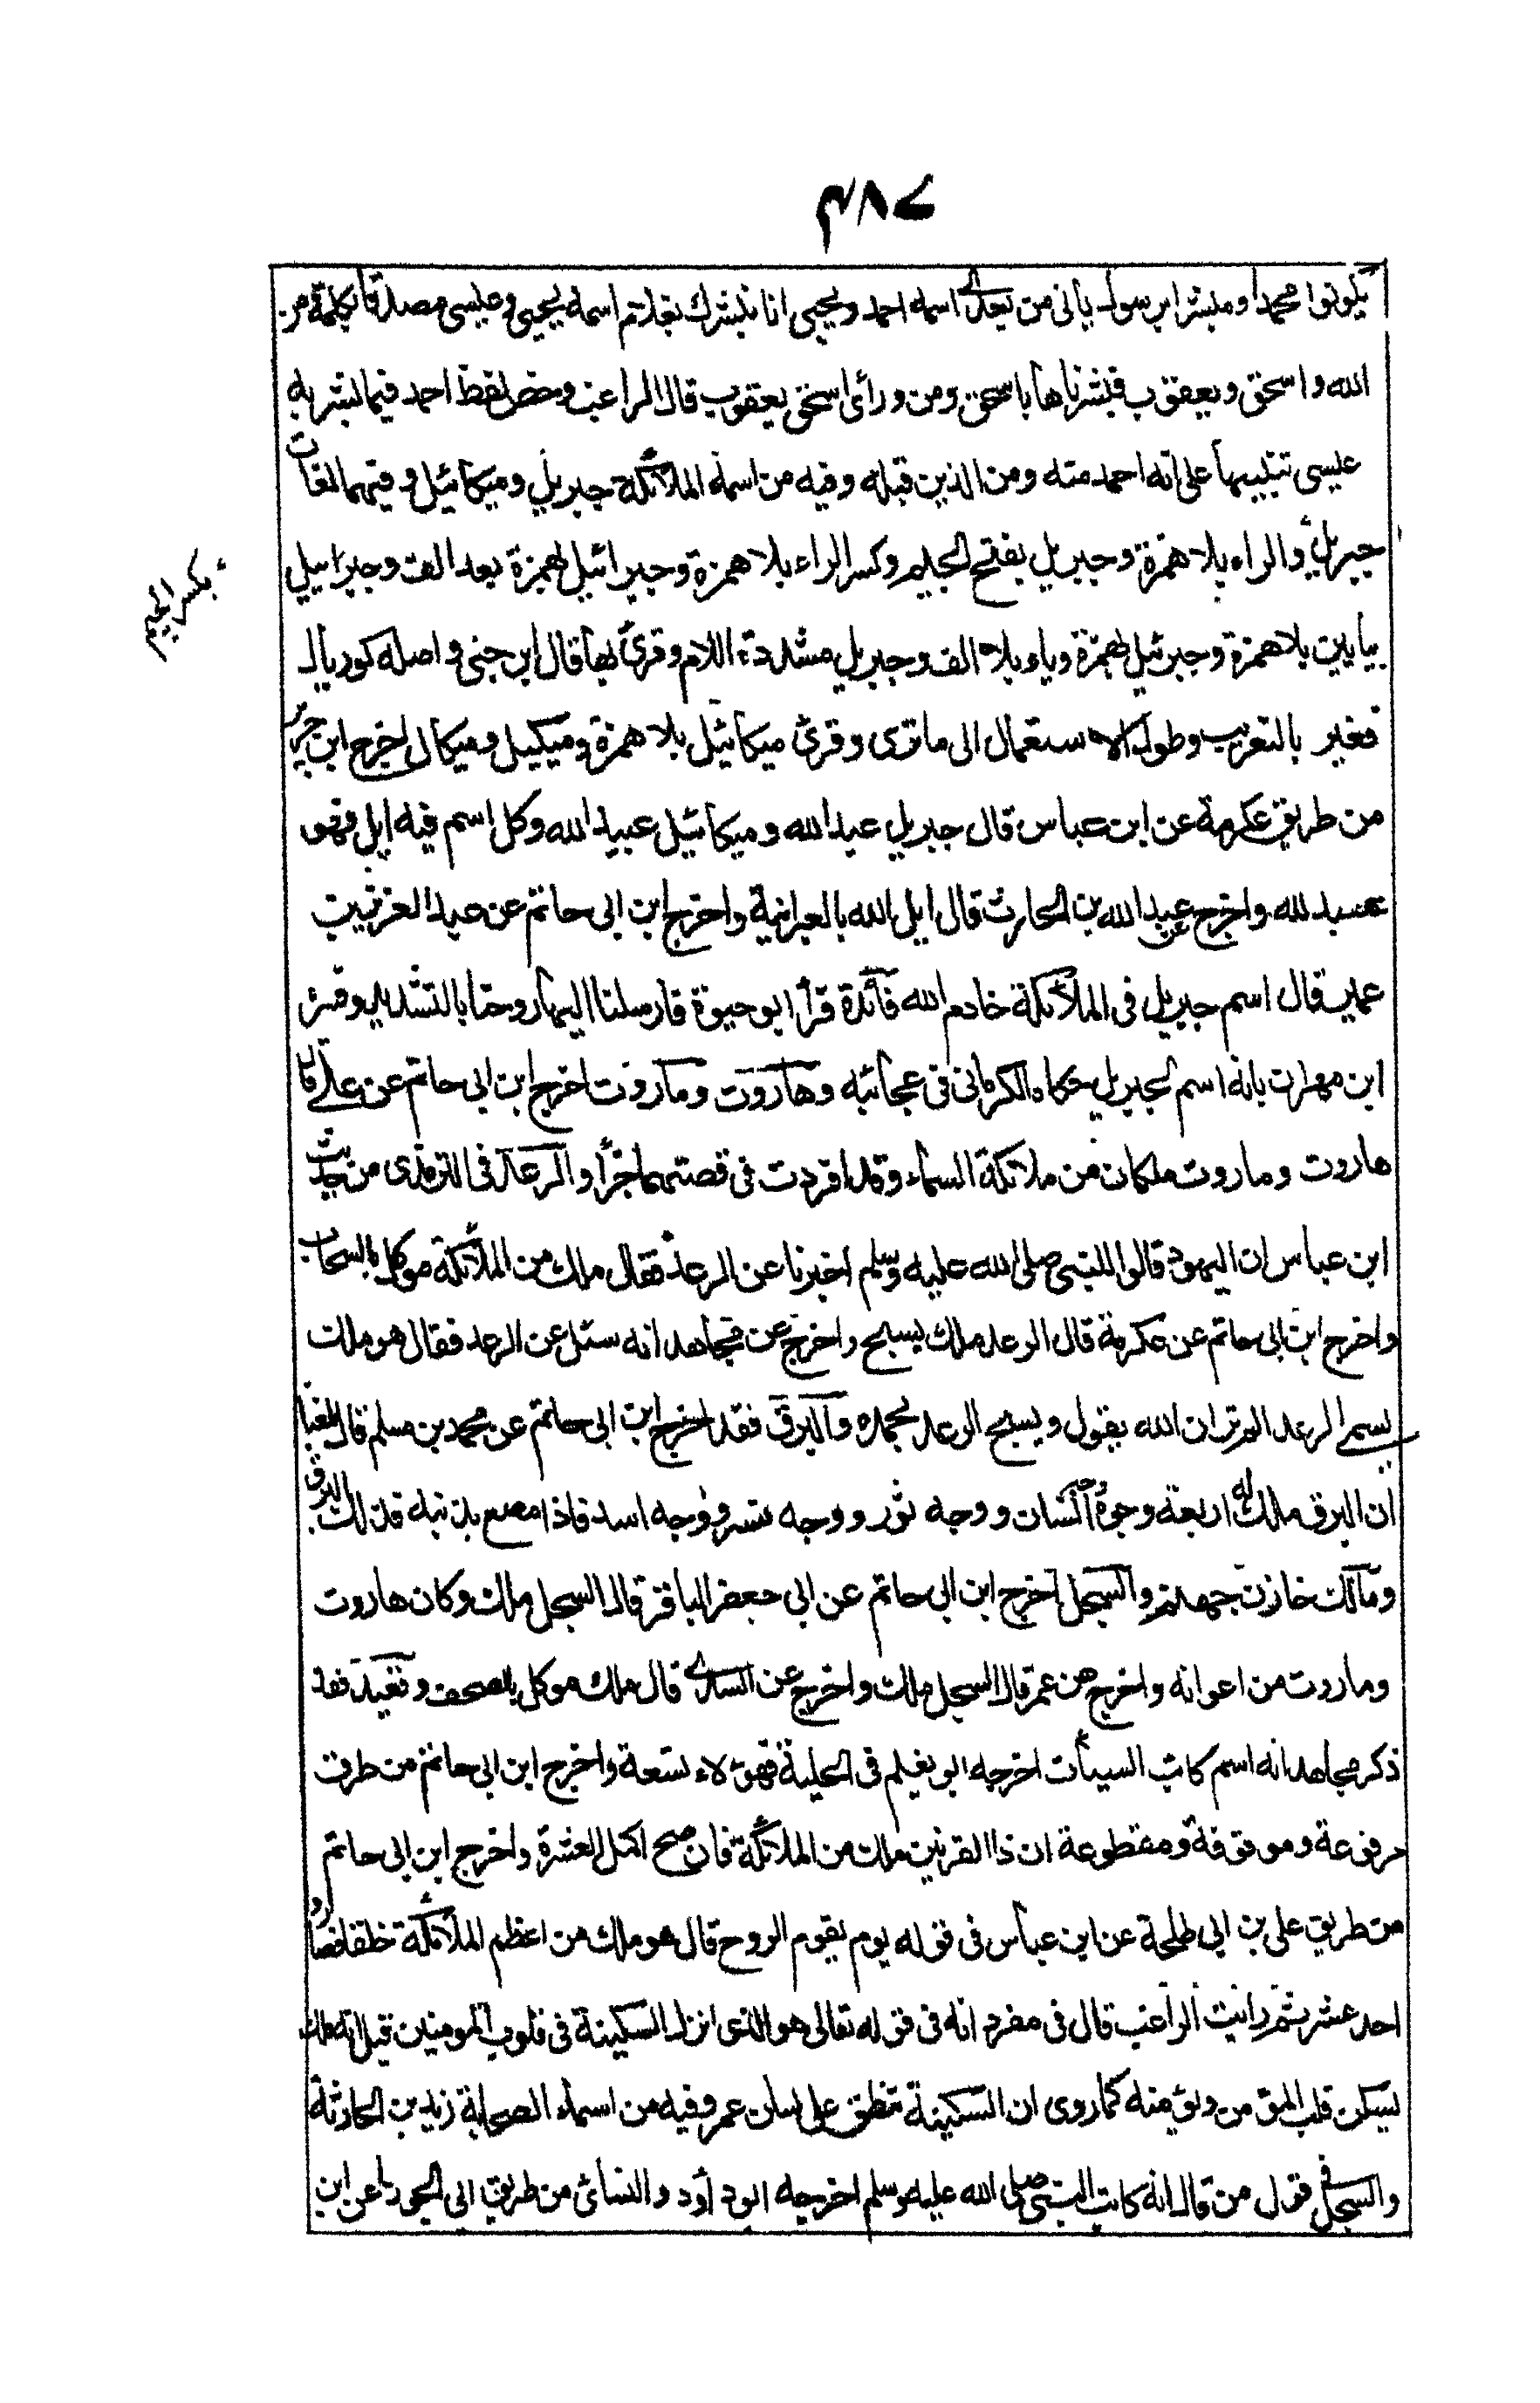 ٤٨٧
يكونوا محمد ومبشرا برسول يأتى من بعدى اسمه احمد ويحيى انا نبشرك بغلام اسمه يحيى وعيسى مصدقا بكلمة من
الله واسحق ويعقوب فبشرناها باسحق ومن ورأى اسحق يعقوب قال الراغب وخص لفظ احمد فيما بشر به
عيسى تنبيها على انه احمد منه ومن الذين قبله وفيه من اسمآء الملآئكة جبريل وميكائيل وفيهما لغات
جبريل والراء بلا همزة وجبريل بفتح الجيم وكسر الراء بلا همزة وجبرائيل بهمزة بعد الف وجبراييل
بكسر الجيم
بيايين بلا همزة وجبرئيل بهمزة وياء بلا الف وجبريل مشددة اللام وقرئ بها قال ابن جنى واصله كوريال
فغير بالتعريب وطول الاستعمال الى ما ترى وقرئ ميكائيل بلا همزة وميكيل وميكال اخرج ابن جرير
من طريق عكرمة عن ابن عباس قال جبريل عبد الله وميكائيل عبيد الله وكل اسم فيه ايل فهو
عبد لله واخرج عن عبد الله بن الحارث قال ايل الله بالعبرانية واخرج ابن ابى حاتم عن عبد العزيز بن
عمير قال اسم جبريل فى الملآئكة خادم الله فآئدة قرأ ابو حيوة فارسلنا اليها روحنا بالتشديد وفسر
ابن مهران بانه اسم لجبريل حكاه الكرمانى فى عجائبه وهاروت وماروت اخرج ابن ابى حاتم عن على قال
هاروت وماروت ملكان من ملائكة السماء وقد افردت فى قصتهما جزأ والرعد فى الترمذى من حديث
ابن عباس ان اليهود قالوا للنبى صلى الله عليه وسلم اخبرنا عن الرعد فقال ملك من الملآئكة موكل بالسحاب
واخرج ابن ابى حاتم عن عكرمة قال الرعد ملك يسبح واخرج عن مجاهد انه سئل عن الرعد فقال هو ملك
يسمى الرعد الم تر ان الله يقول ويسبح الرعد بحمده والبرق فقد اخرج ابن ابى حاتم عن محمد بن مسلم قال بلغنا
ان البرق ملك له اربعة وجوه وجه انسان ووجه ثور ووجه نسر ووجه اسد فاذا مصع بذنبه فذلك البرق
ومالك خازن جهنم والسجل اخرج ابن ابى حاتم عن ابى جعفر الباقر قال السجل ملك وكان هاروت
وماروت من اعوانه واخرج عن عمر قال السجل ملك واخرج عن السدى قال ملك موكل بالصحف وقعيد فقد
ذكر مجاهد انه اسم كاتب السيئات اخرجه ابو نعيم فى الحلية فهؤلاء تسعة واخرج ابن ابى حاتم من طرق
مرفوعة وموقوفة ومقطوعة ان ذا القرنين ملك من الملآئكة فان صح اكمل العشرة واخرج ابن ابى حاتم
من طريق على بن ابى طلحة عن ابن عباس فى قوله يوم يقوم الروح قال هو ملك من اعظم الملآئكة خلقا فصاروا
احد عشر ثم رايت الراغب قال فى مفرد انه فى قوله تعالى هو الذى انزل السكينة فى قلوب المومنين قيل انه ملك
يسكن قلب المؤمن ويؤمنه كما روى ان السكينة تنطق على لسان عمر وفيه من اسمآء الصحابة زيد بن الحارثة
والسجل فى قول من قال انه كاتب النبى صلى الله عليه وسلم اخرجه ابو دأود والنسائ من طريق ابى الجوزا عن ابن